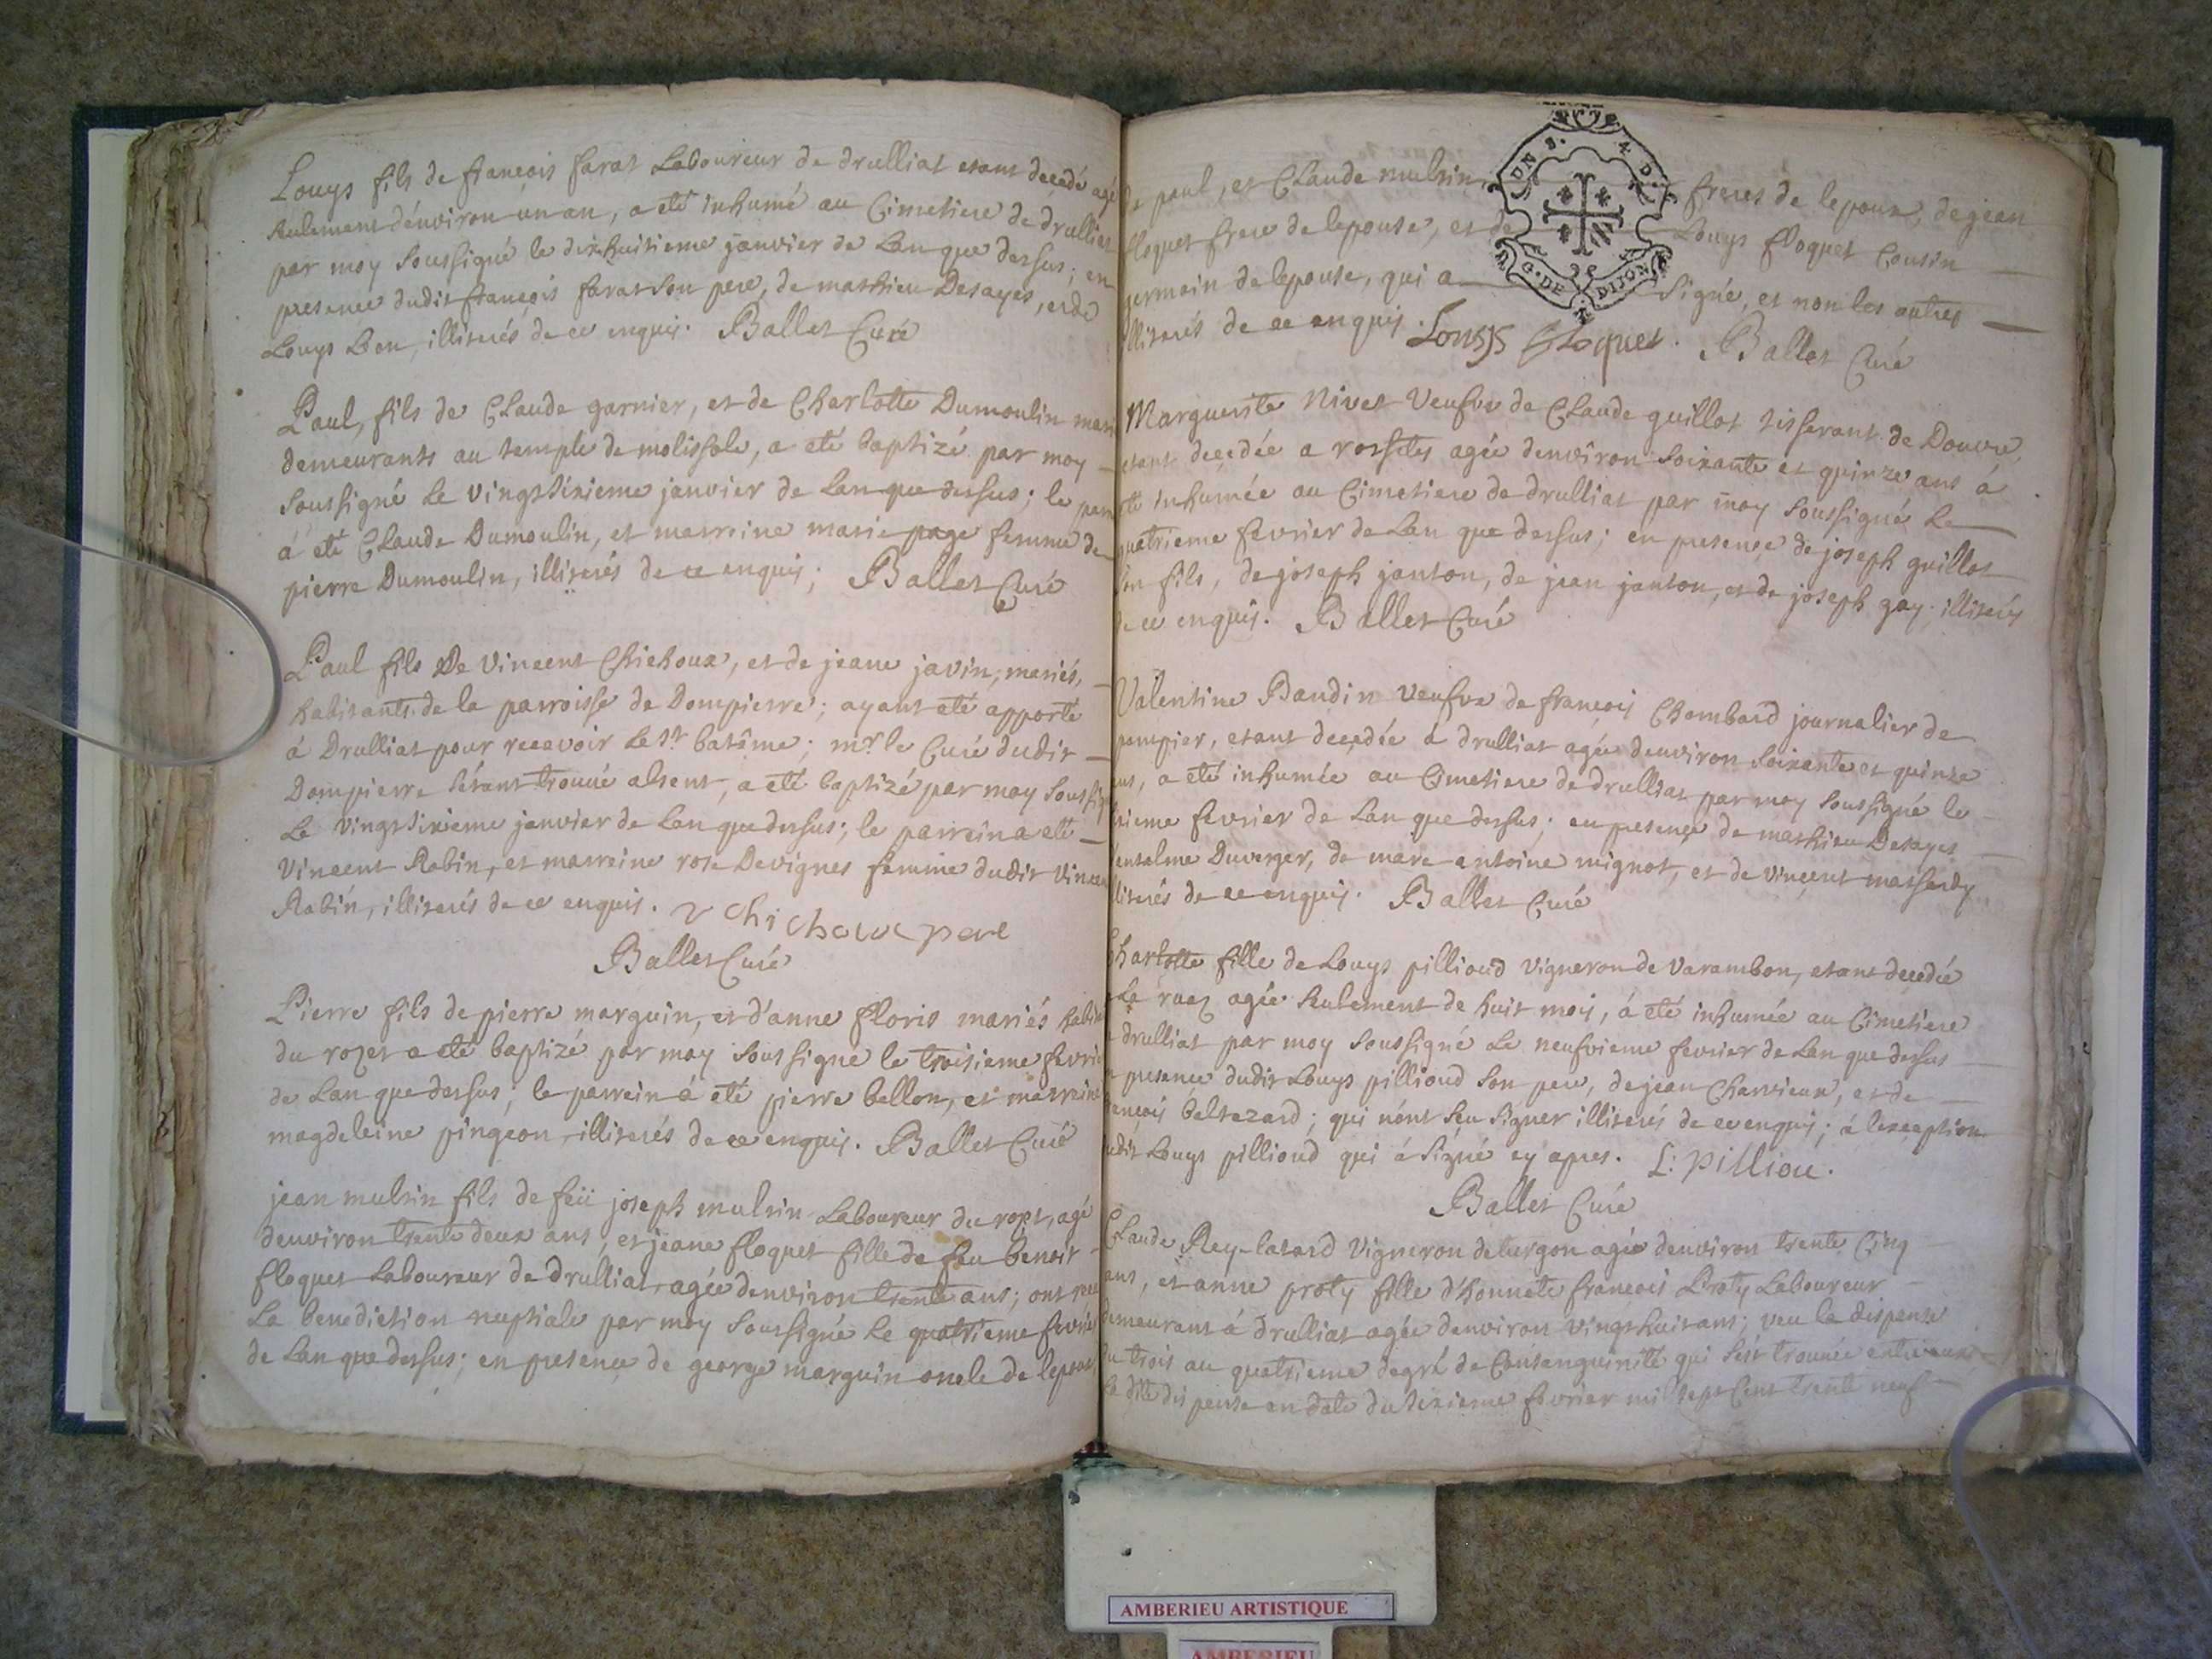 Louys fils de françois farat Laboureur de drulliat etant decedé agé
seulement d'environ un an, a eté inhumé au Cimetiere de drulliat
par moy Soussigné le dixhuitieme janvier de Lan que dessus; en
presence dudit françois farat Son pere, de mathieu Desayes, et de
Louys Bon, illiterés de ce enquis. Ballet Curé
Paul, fils de Claude garnier, et de Charlotte Dumoulin mari
demeurants au temple de molissole, a eté baptizé par moy
Soussigné Le vingtsixieme janvier de Lan que dessus; le parr
a eté Claude Dumoulin, et marreine marie page femme de
pierre Dumoulin, illiterés de ce enquis; Ballet Curé
Paul fils De Vincent Chichoux, et de jeane javin, mariés,
habitants de la parroisse de Dompierre; ayant eté apporté
à Drulliat pour recevoir Le st batême; mr. le Curé dudit
Dompierre s'étant trouvé absent, a eté baptizé par moy Soussig
Le vingtsixieme janvier de Lan que dessus; le parrein a eté
Vincent Robin, et marreine rose Devignes femme dudit Vincen
Robin, illiterés de ce enquis. v chichoux pere
Ballet Curé
Pierre fils de pierre marguin, et d'anne Floris mariés habit
du rozet a eté baptizé par moy Soussigné le troisieme fevrie
de Lan que dessus; le parrein à eté pierre bellon, et marreine
magdeleine pingeon, illiterés de ce enquis. Ballet Curé
jean mulsin fils de feü joseph mulsin Laboureur du rozet, agé
d'environ trente deux ans, et jeane floquet fille de feu benoit
floquet Laboureur de drulliat, agée d'environ trente ans; ont receu
La benediction nuptiale par moy Soussigné Le quatrieme fevrier
de Lan que dessus; en presence de george marguin oncle de lepoux,
de paul, et Claude mulsin, freres de lepoux, de jean
floquet frere de lepouse, et de Louys floquet Cousin
germain de lepouse, qui a Signé, et non les autres
illiterés de ce enquis. Louys floquet. Ballet Curé
DN 8. 4. D. G. DE DIJON
Marguerite Nivet Veufve de Claude guillot tisserant de Douvre,
etant decedée a rossetes agée denviron soixante et quinze ans à
eté inhumée au Cimetiere de drulliat par moy Soussigné Le
quatrieme fevrier de Lan que dessus; en presence de joseph guillot
Son fils, de joseph janton, de jean janton, et de joseph gay illiterés
de ce enquis. Ballet Curé
Valentine Baudin Veufve de françois Chambard journalier de
pampier, etant decedée à drulliat agée d'environ Soixante et quinze
ans, a eté inhumée au Cimetiere de drulliat par moy Soussigné le
ieme fevrier de Lan que dessus; en presence de mathieu Desayes
entelme Duverger, de marc antoine mignot, et de vincent massardy
literés de ce enquis. Ballet Curé
Charlotte fille de Louys pillioud Vigneron de Varambon, etant decedée
agée seulement de huit mois, à eté inhumée au Cimetiere
drulliat par moy Soussigné Le neufvieme fevrier de Lan que dessus
presence dudit Louys pillioud Son pere, de jean Charvieux, et de
françois baltazard; qui n'ont sçu Signer illiterés de ce enquis; à lexception
dudit Louys pillioud qui à Signé cy apres. L: pilliou.
Ballet Curé
Claude Rey-latard Vigneron de turgon agée d'environ trente Cinq
ans, et anne proty fille d'honnete françois Proty Laboureur
demeurant à drulliat agée d'environ vingt huit ans; veu la dispense
du trois au quatrieme degré de Consanguinité qui s'est trouvée entre eux
la ditte dispense en date du sixieme fevrier mil sept Cent trente neuf
AMBERIEU ARTISTIQUE
AMBERIEU